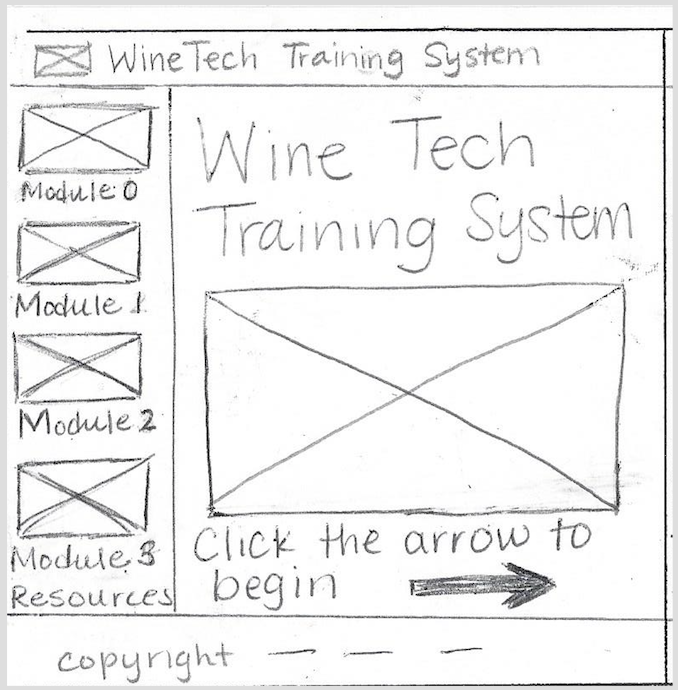 WineTech Training System
Module 0
Module 1
Module 2
Module 3
Resources
Wine Tech
Training System
Click the arrow to
begin
copyright